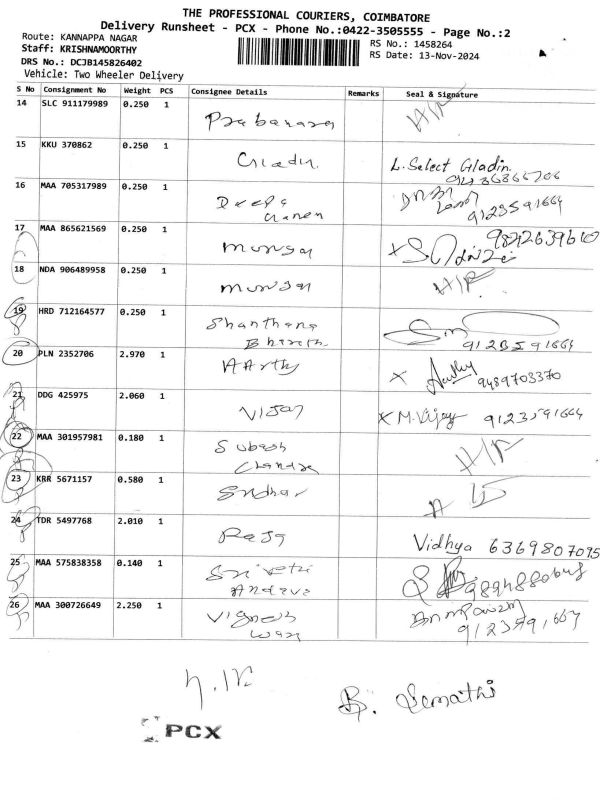 THE PROFESSIONAL COURIERS, COIMBATORE
Delivery Runsheet - PCX - Phone No.:0422-3505555 - Page No.:2
Route: KANNAPPA NAGAR
RS No.: 1458264
Staff: KRISHNAMOORTHY
RS Date: 13-Nov-2024
DRS No.: DCJB145826402
Vehicle: Two Wheeler Delivery
S No Consignment No Weight PCS Consignee Details Remarks Seal & Signature
14 SLC 911179989 0.250 1 H/R
15 KKU 370862 0.250 1 Gladin. L. Select Gladin.
16 MAA 705317989 0.250 1 Deepa 9123591664
17 MAA 865621569 0.250 1 Murugan
18 NDA 906489958 0.250 1 Murugan H/R
19 HRD 712164577 0.250 1 Shanthana
Bharath 9123591664
20 PLN 2352706 2.970 1 AArthy X Aarthy 9489703370
21 DDG 425975 2.060 1 Vijay X M. Vijay 9123591664
22 MAA 301957981 0.180 1 Subash H/R
23 KRR 5671157 0.580 1 Sridhar
24 TDR 5497768 2.010 1 Raja Vidhya 6369807095
25 MAA 575838358 0.140 1
26 MAA 300726649 2.250 1 Vignesh
9123591664
B. Semathi
PCX